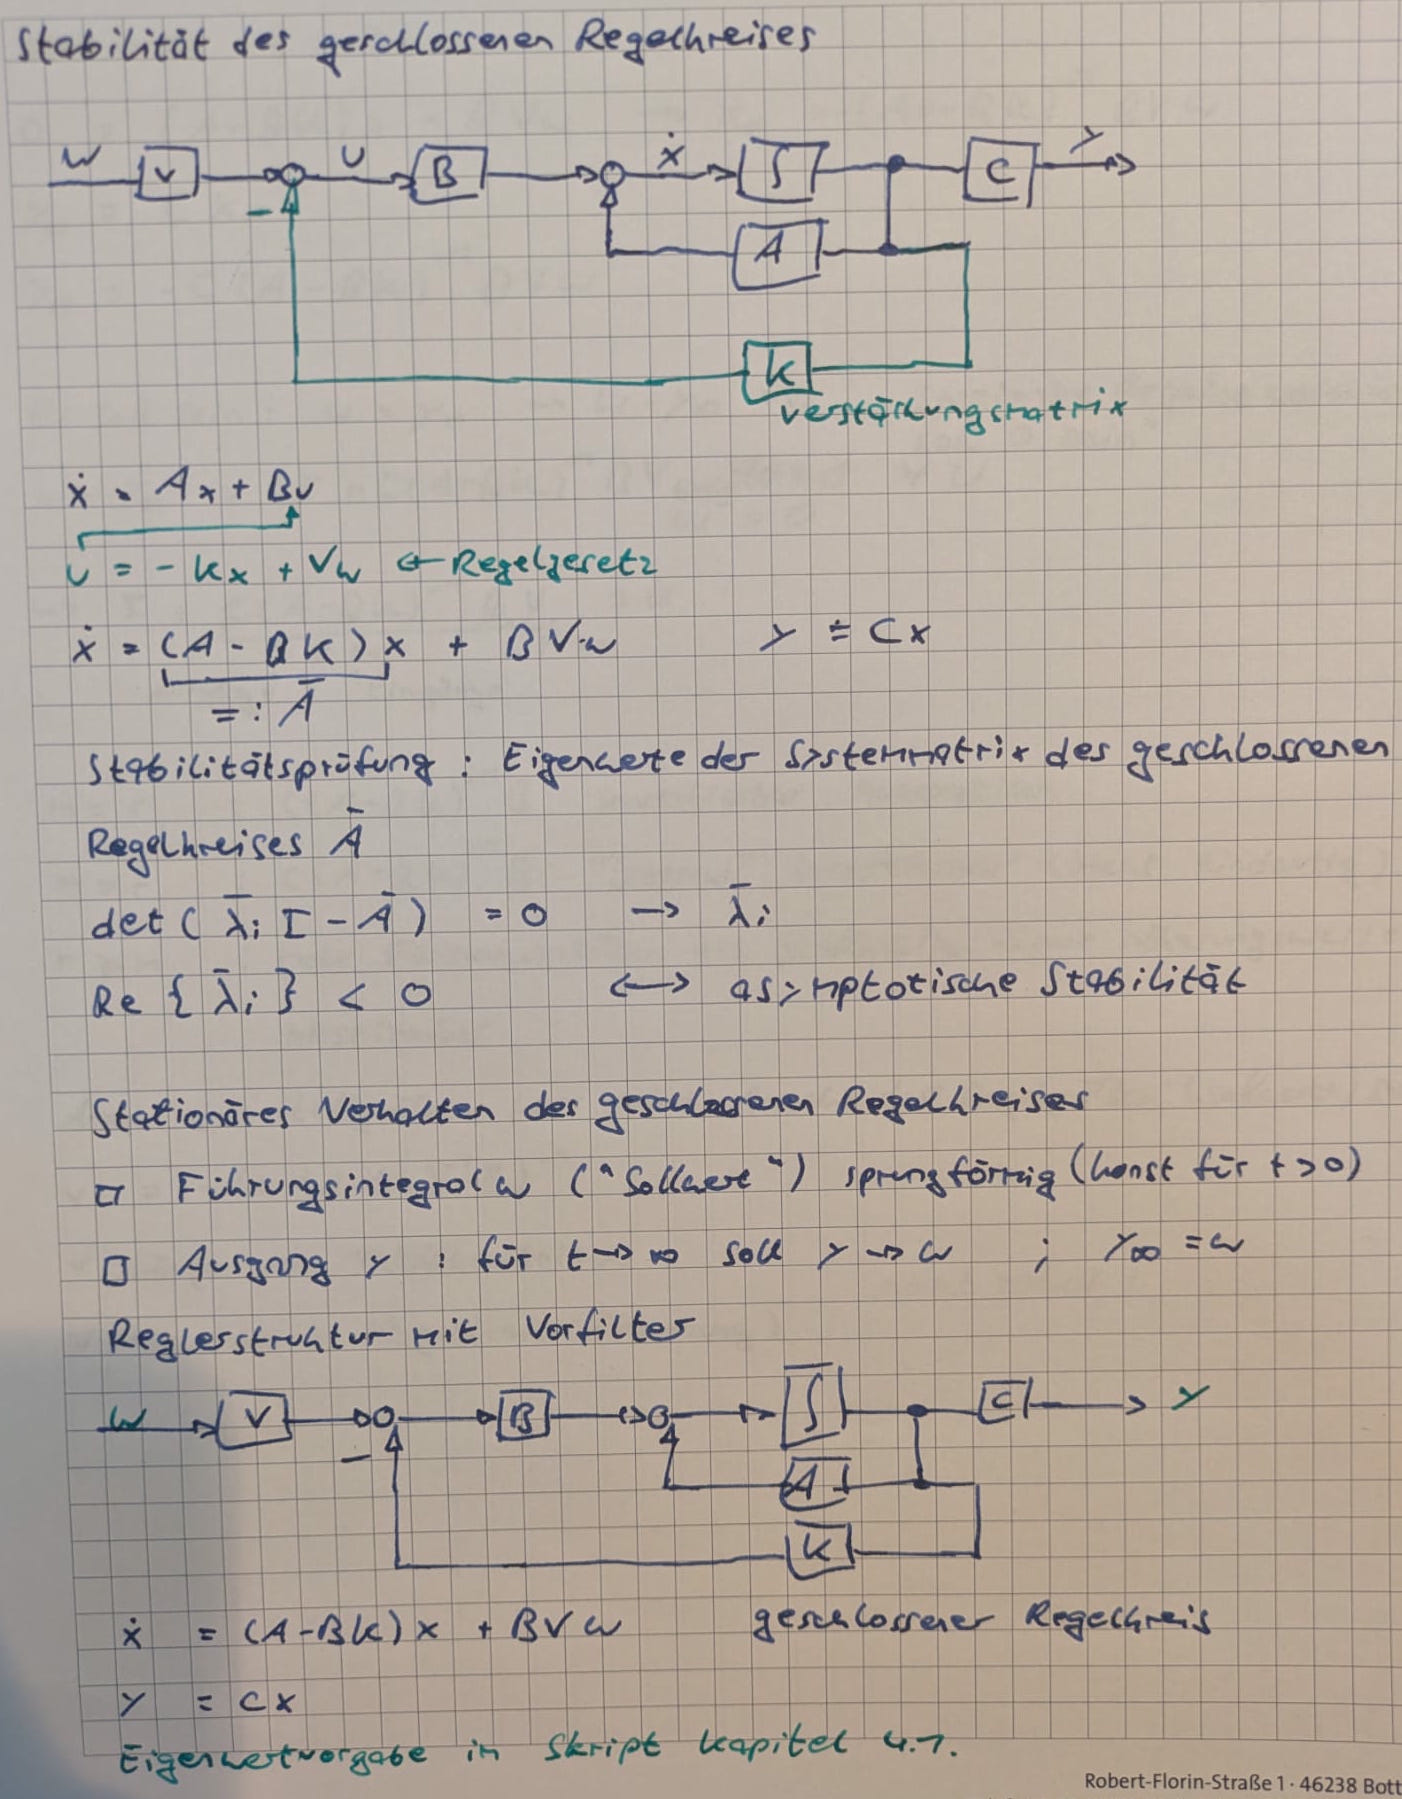 Stabilität des geschlossenen Regelkreises
w V u B ẋ ∫ C y
−
A
K
Verstärkungsmatrix
ẋ = Ax + Bu
u = - Kx + Vw ← Regelgesetz
ẋ = (A - BK) x + B V w y = Cx
= : Ā
Stabilitätsprüfung : Eigenwerte der Systemmatrix des geschlossenen
Regelkreises Ā
det ( λ̄i I - Ā ) = 0 → λ̄i
Re { λ̄i } < 0 ↔ asymptotische Stabilität
Stationäres Verhalten des geschlossenen Regelkreises
□ Führungsintegral w ("Sollwert") sprungförmig (konst für t > 0)
□ Ausgang y : für t → ∞ soll y → w ; y∞ = w
Reglerstruktur mit Vorfilter
w V B ∫ C y
−
A
K
ẋ = (A - BK) x + B V w geschlossener Regelkreis
y = Cx
Eigenwertvorgabe im Skript Kapitel 4.1.
Robert-Florin-Straße 1 · 46238 Bott